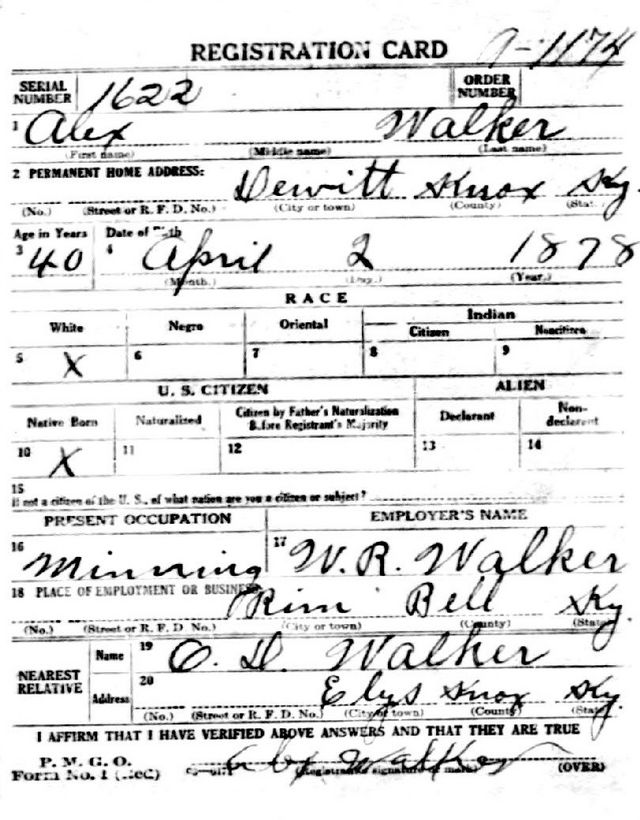 REGISTRATION CARD 9-1174
SERIAL NUMBER 1622 ORDER NUMBER
1 Alex Walker
(First name) (Middle name) (Last name)
2 PERMANENT HOME ADDRESS: Dewitt Knox Ky.
(No.) (Street or R. F. D. No.) (City or town) (County) (State)
Age in Years Date of Birth
3 40 4 April 2 1878
(Month.) (Day.) (Year.)
RACE
White Negro Oriental Indian
Citizen Noncitizen
5 X 6 7 8 9
U. S. CITIZEN ALIEN
Native Born Naturalized Citizen by Father's Naturalization Before Registrant's Majority Declarant Non-declarant
10 X 11 12 13 14
15
If not a citizen of the U. S., of what nation are you a citizen or subject?
PRESENT OCCUPATION EMPLOYER'S NAME
16 Minning 17 W. R. Walker
18 PLACE OF EMPLOYMENT OR BUSINESS: Bell Ky.
(No.) (Street or R. F. D. No.) (City or town) (County) (State)
NEAREST RELATIVE Name 19 O. D. Walker
Address 20 Elys Knox Ky.
(No.) (Street or R. F. D. No.) (City or town) (County) (State)
I AFFIRM THAT I HAVE VERIFIED ABOVE ANSWERS AND THAT THEY ARE TRUE
P. M. G. O.
Form No. 1 (Red) Alex Walker
(Registrant's signature or mark) (OVER)